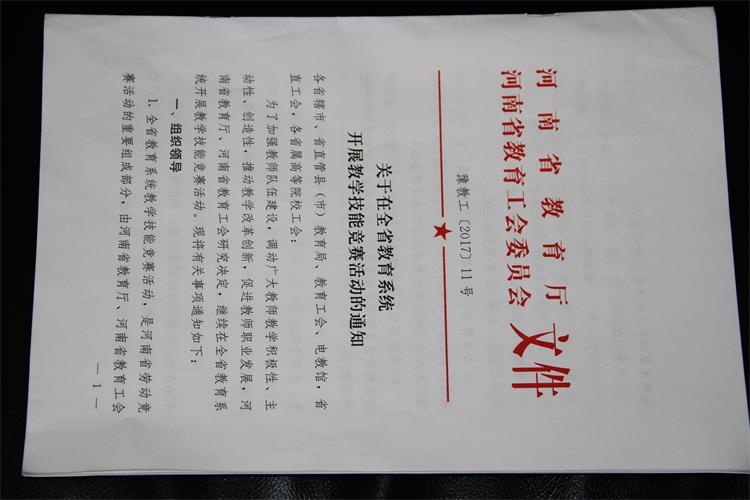 河南省教育厅
河南省教育工会委员会
文件
豫教工〔2017〕11号
关于在全省教育系统
开展教学技能竞赛活动的通知
各省辖市、省直管县（市）教育局、教育工会、电教馆，省
直工会，各省属高等院校工会：
为了加强教师队伍建设，调动广大教师教学积极性、主
动性、创造性，推动教学改革创新，促进教师职业发展，河
南省教育厅、河南省教育工会研究决定，继续在全省教育系
统开展教学技能竞赛活动。现将有关事项通知如下：
一、组织领导
1. 全省教育系统教学技能竞赛活动，是河南省劳动竞
赛活动的重要组成部分，由河南省教育厅、河南省教育工会
— 1 —